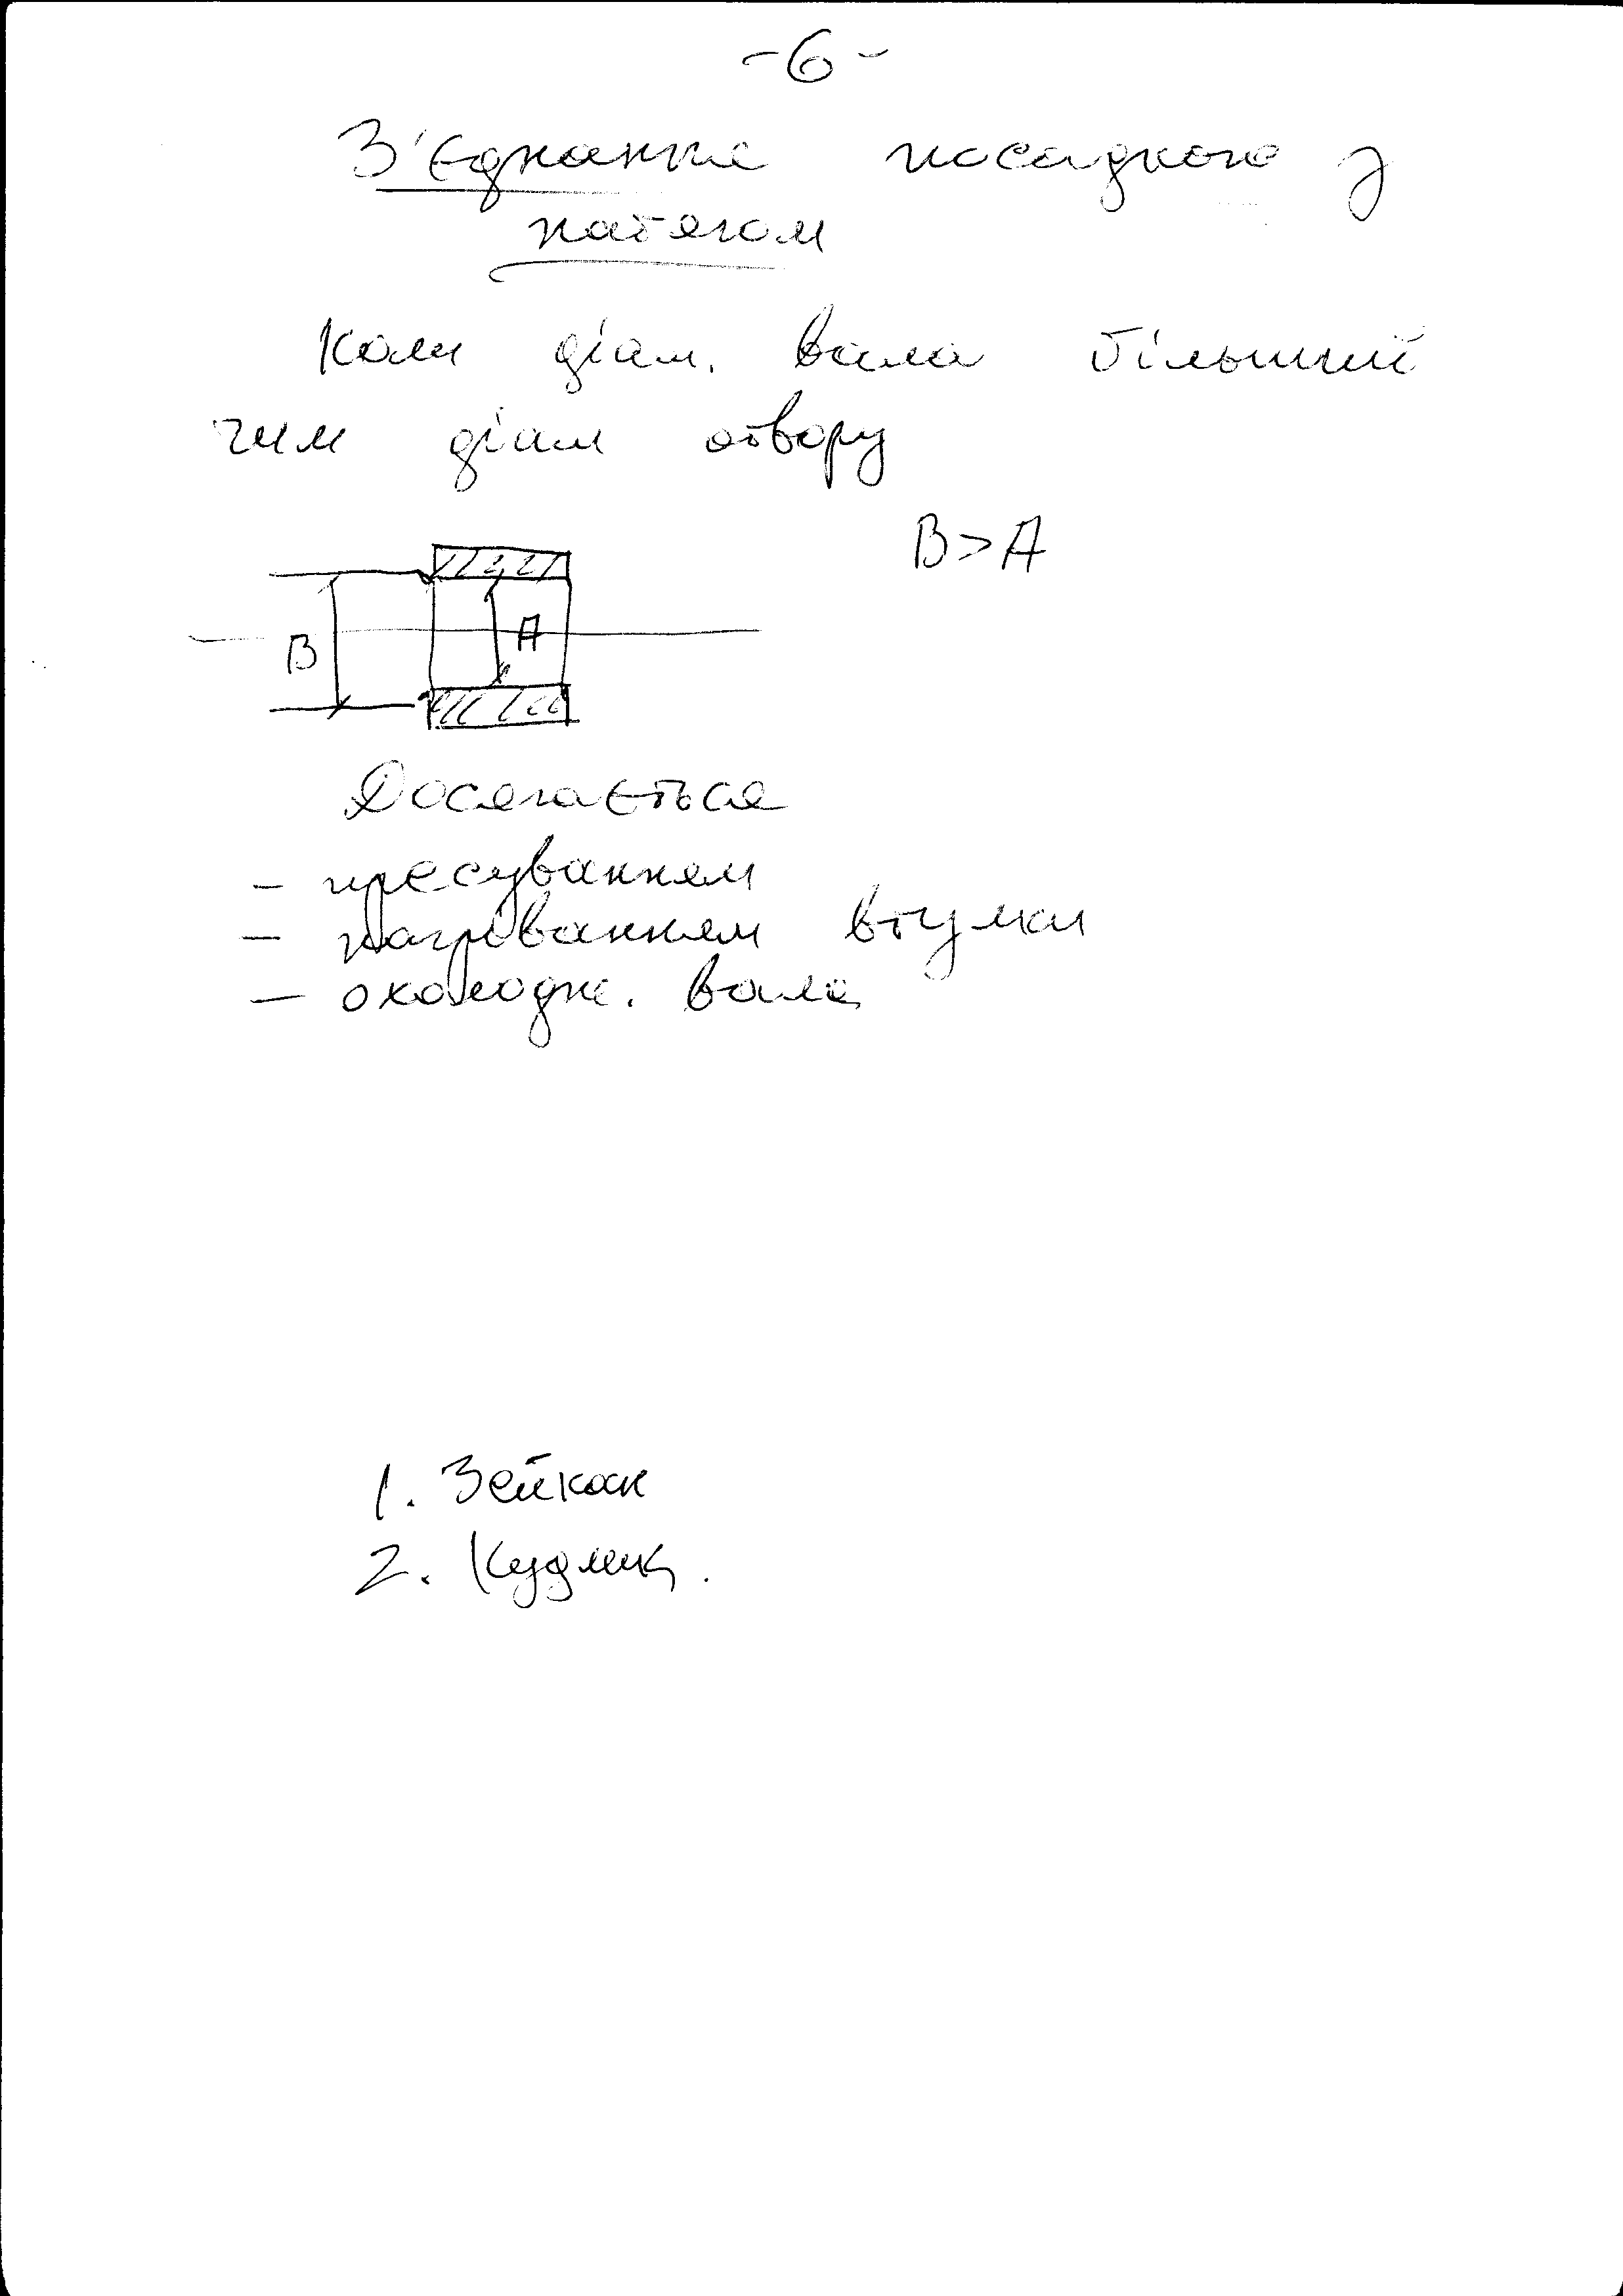 -6-
З'єднання посадкою з
натягом
Коли діам. вала більший
чим діам отвору
B>A
B
A
Досягається
- пресуванням
- нагріванням втулки
- охолодж. вала
1. Зейкан
2. Кудлик.